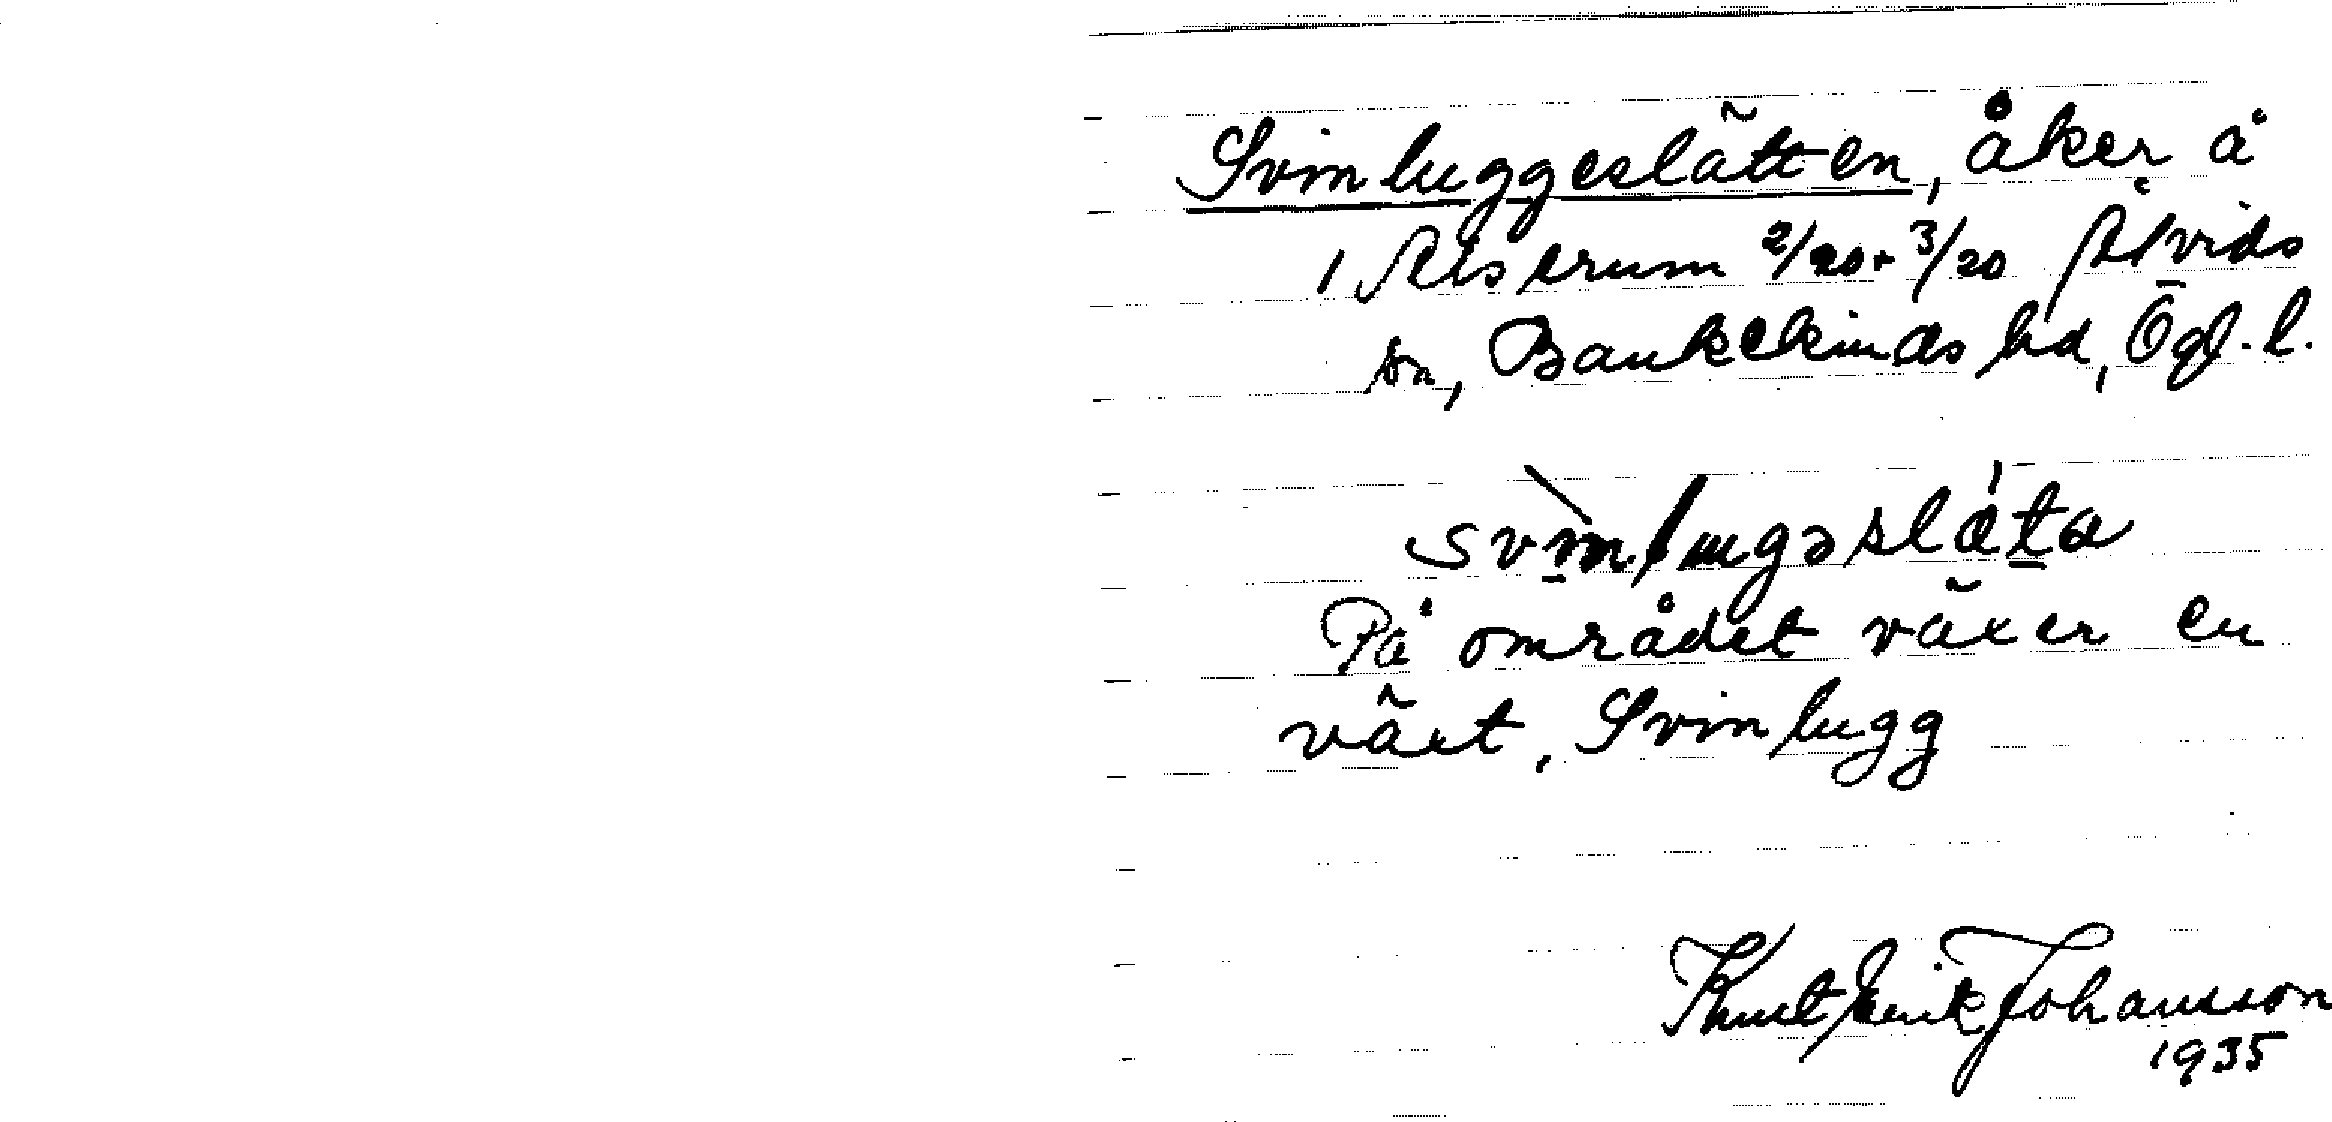 Svinluggeslätten, åker å
1 Alserum 2/20 + 3/20 Åtvids
sn, Bankekinds hd, Ögl. l.
svinlugəslǽta
På området växer en
växt, Svinlugg
Knut Erik Johansson
1935